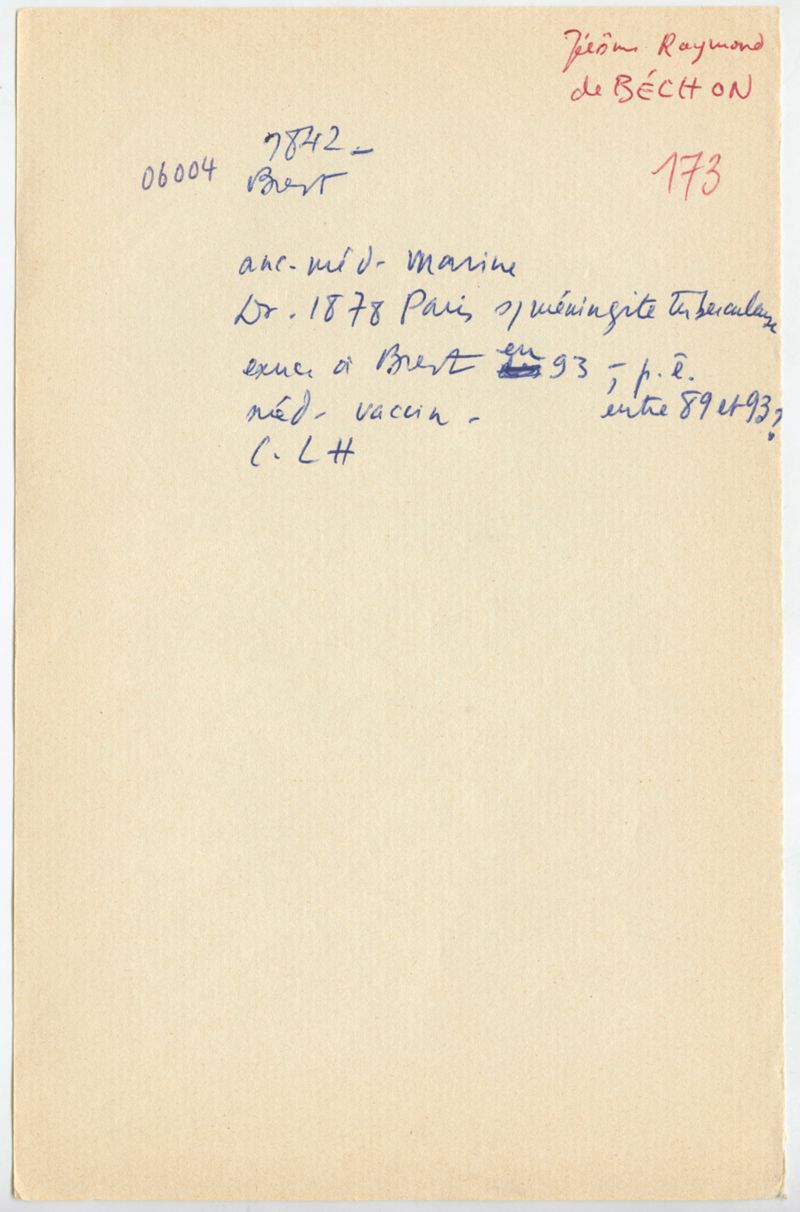 Jérôme Raymond
de BÉCHON
1842 -
06004
Brest
173
anc. méd. Marine
Dr. 1878 Paris s/ méningite tuberculeuse
exerce à Brest en 93 -, p. ê.
méd. vaccin - entre 89 et 93?
C. LH